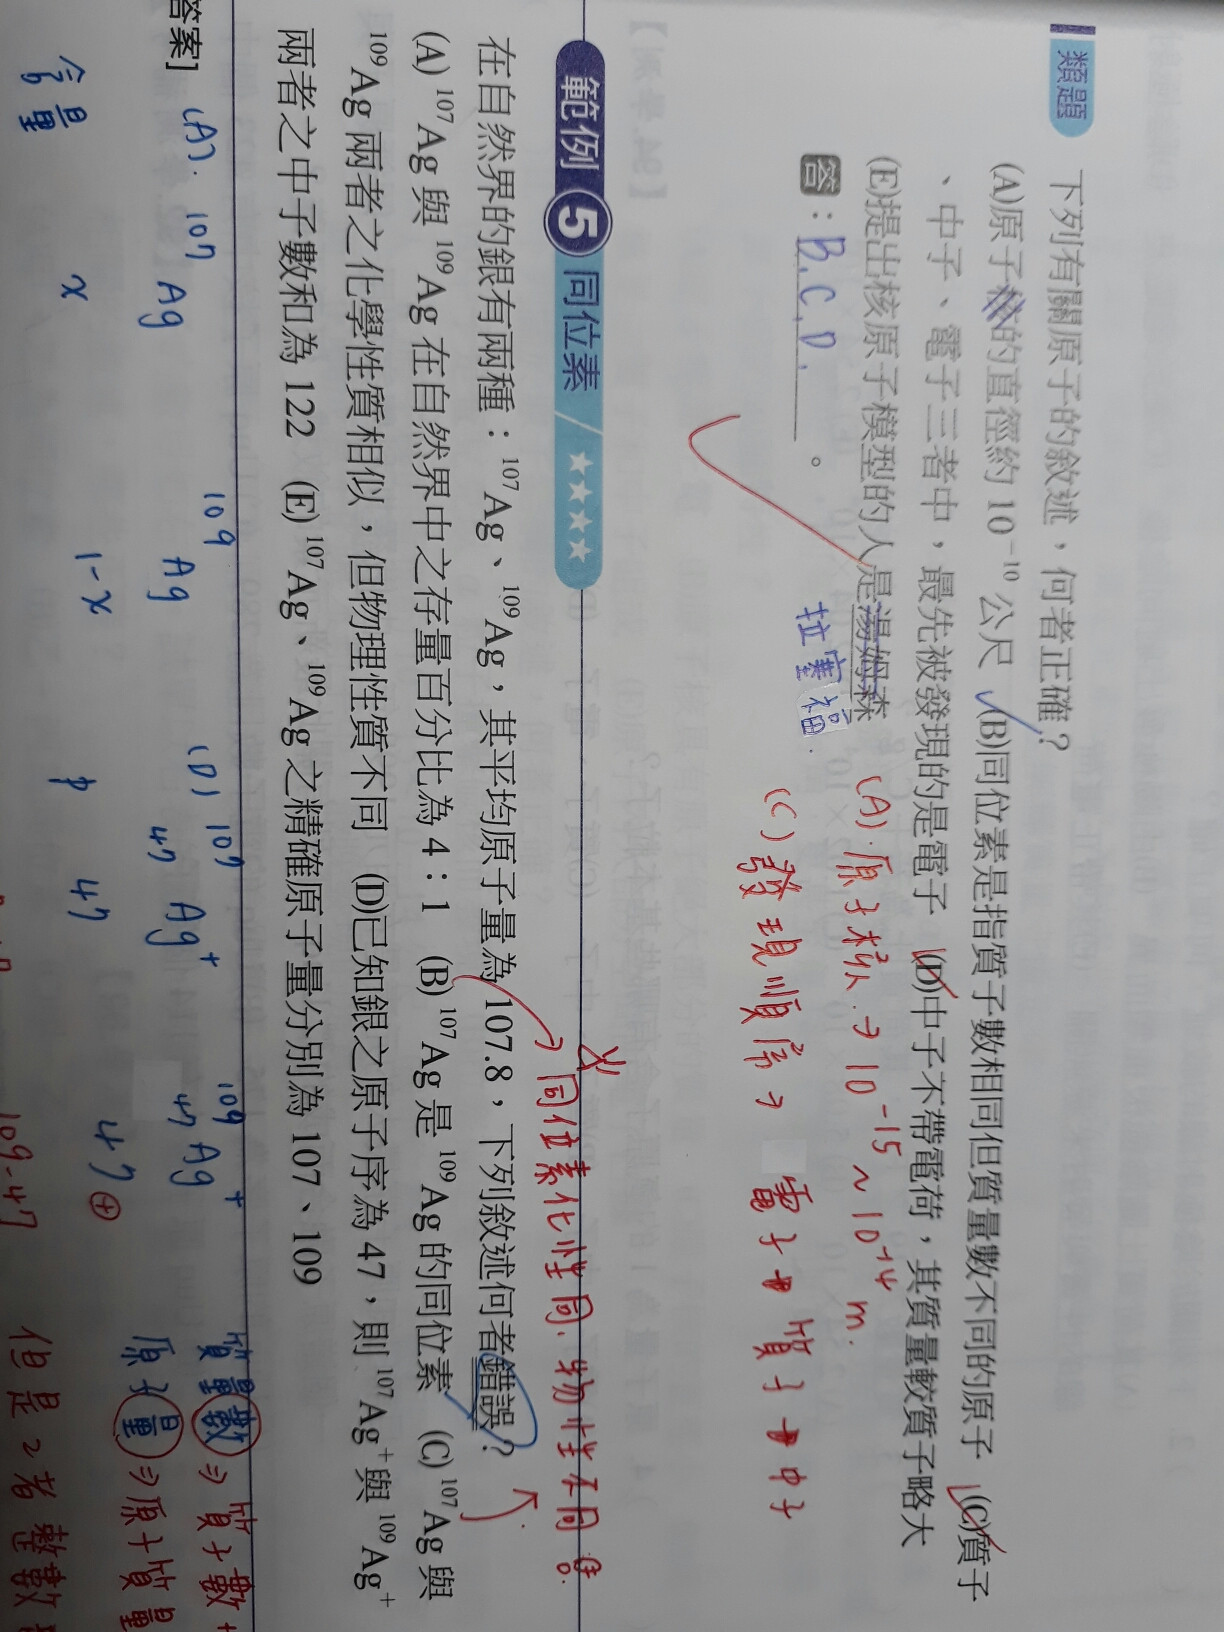 類題
下列有關原子的敘述，何者正確？
(A)原子核的直徑約 10⁻¹⁰ 公尺 (B)同位素是指質子數相同但質量數不同的原子 (C)質子
、中子、電子三者中，最先被發現的是電子 (D)中子不帶電荷，其質量較質子略大
(E)提出核原子模型的人是湯姆森
拉塞福.
(A).原子核.→10⁻¹⁵~10⁻¹⁴ m.
答：B.C.D.。
(C)發現順序→ 電子→質子→中子
範例 5 同位素 ★★★★
→同位素化性同.物性不同
在自然界的銀有兩種：¹⁰⁷Ag、¹⁰⁹Ag，其平均原子量為 107.8，下列敘述何者錯誤？
(A) ¹⁰⁷Ag 與 ¹⁰⁹Ag 在自然界中之存量百分比為 4：1 (B) ¹⁰⁷Ag 是 ¹⁰⁹Ag 的同位素 (C) ¹⁰⁷Ag 與
¹⁰⁹Ag 兩者之化學性質相似，但物理性質不同 (D)已知銀之原子序為 47，則 ¹⁰⁷Ag⁺ 與 ¹⁰⁹Ag⁺
兩者之中子數和為 122 (E) ¹⁰⁷Ag、¹⁰⁹Ag 之精確原子量分別為 107、109
答案] (A). ¹⁰⁷Ag ¹⁰⁹Ag (D) ¹⁰⁷₄₇Ag⁺ ¹⁰⁹₄₇Ag⁺ 質量數⇒質子數+
原子量⇒原子質量
含量 x 1-x p 47 47
109-47 但是2者整數